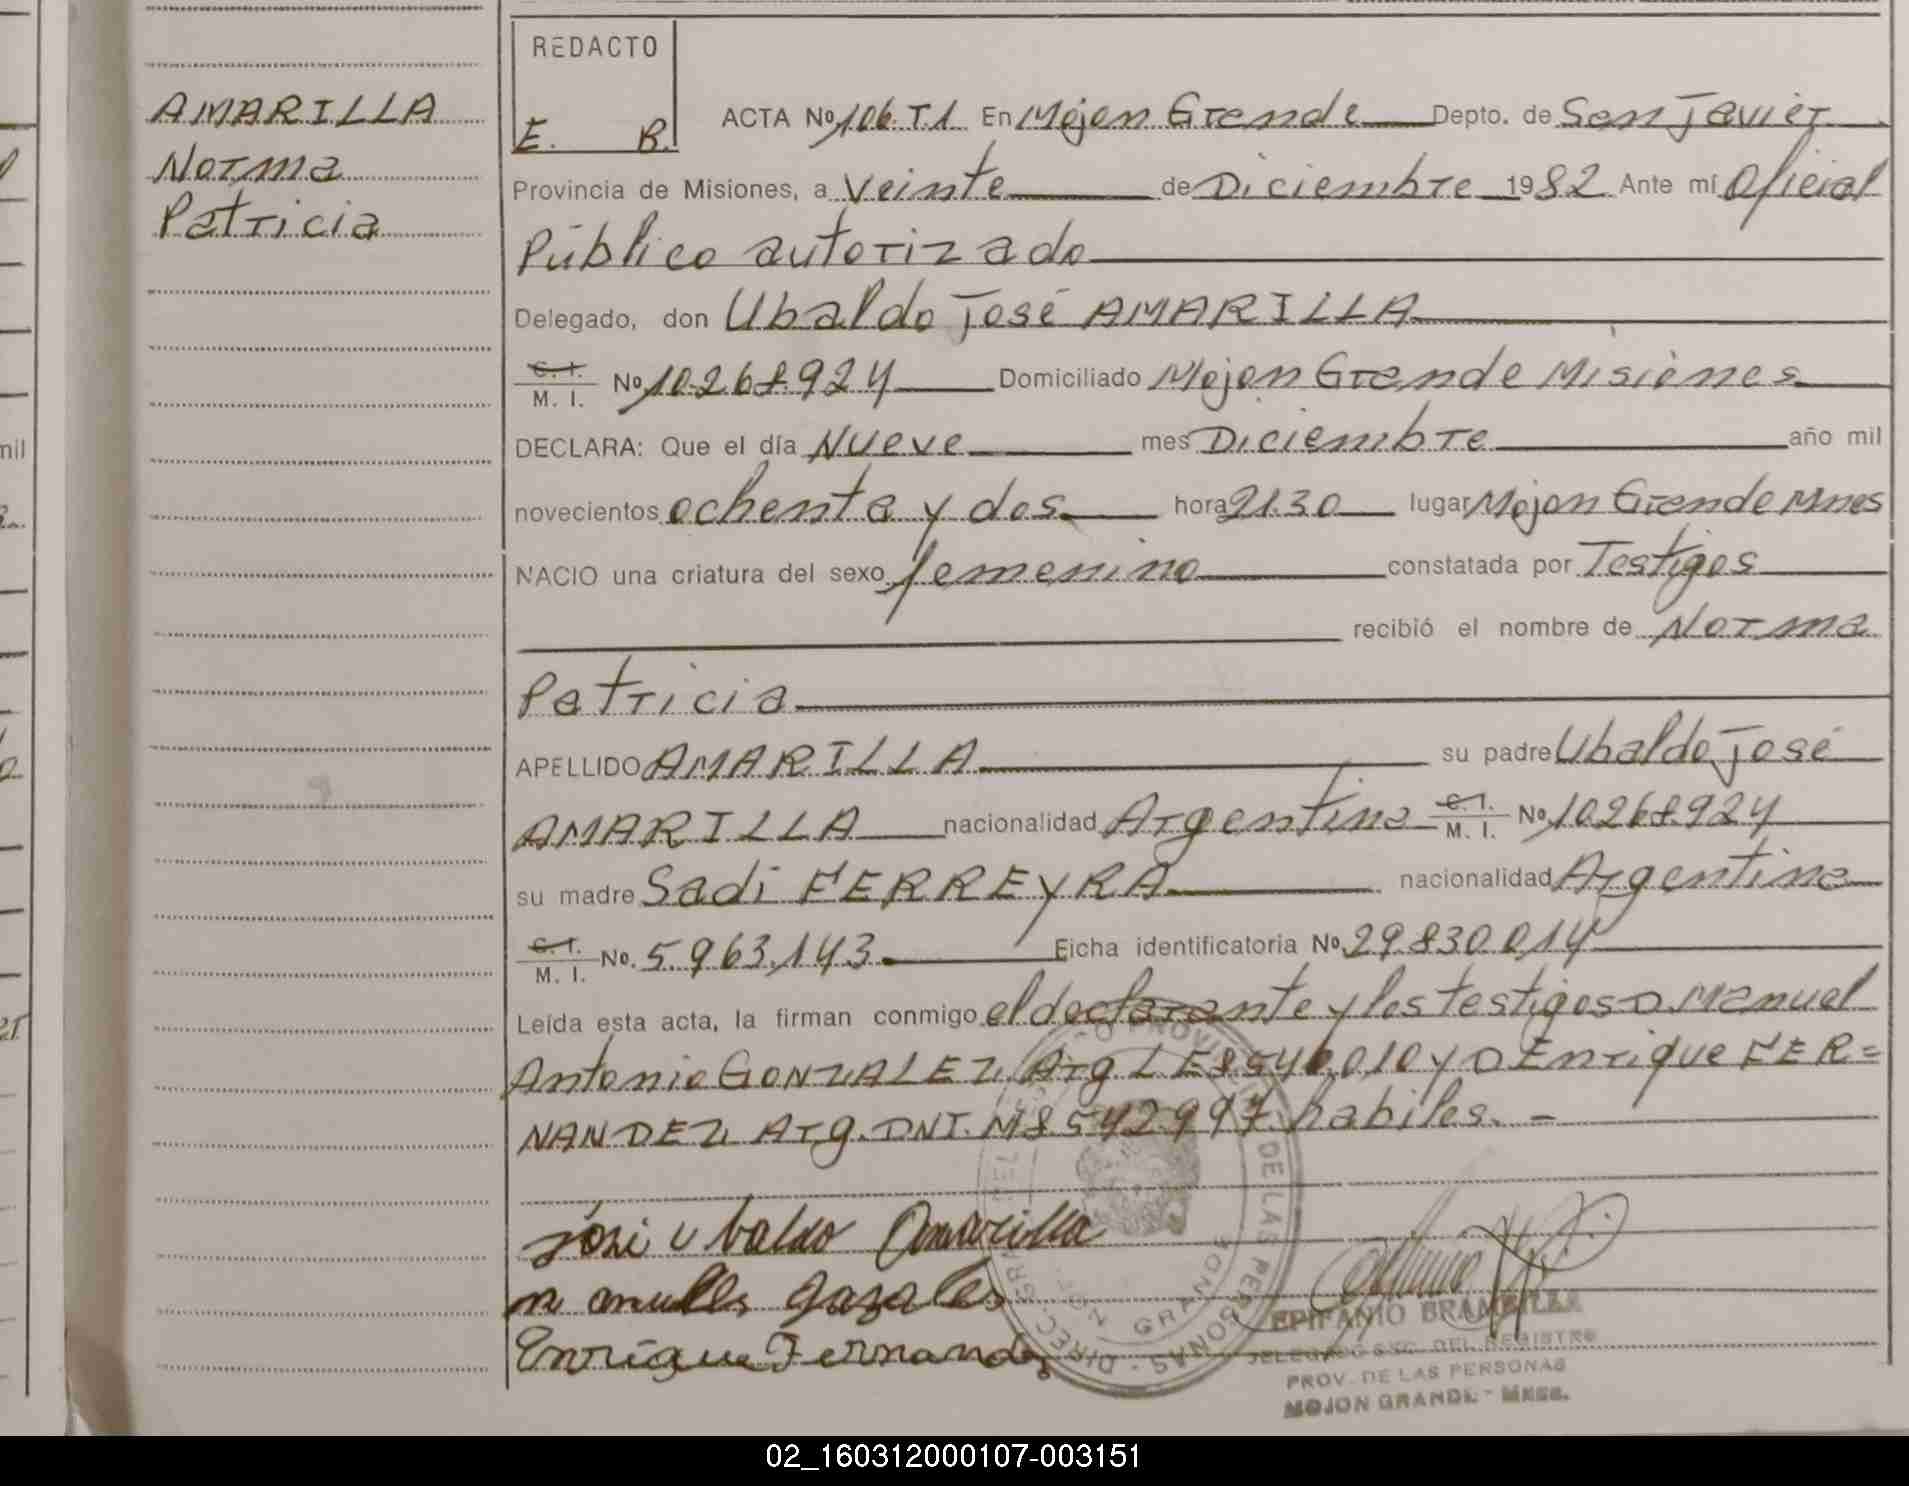 AMARILLA
Norma
Patricia
REDACTO
E. B.
ACTA No 106 T1 En Mojon Grande Depto. de San Javier
Provincia de Misiones, a Veinte de Diciembre 1982 Ante mí Oficial
Público autorizado
Delegado, don Ubaldo José AMARILLA
C. I.
M. I. No 10.268.924 Domiciliado Mojon Grande Misiones
DECLARA: Que el día Nueve mes Diciembre año mil
novecientos ochenta y dos hora 21.30 lugar Mojon Grande Mnes
NACIO una criatura del sexo femenino constatada por Testigos
recibió el nombre de Norma
Patricia
APELLIDO AMARILLA su padre Ubaldo José
AMARILLA nacionalidad Argentina C. I. M. I. No 10268.924
su madre Sadi FERREYRA nacionalidad Argentina
C. I.
M. I. No. 5.963.143 Ficha identificatoria No. 29.830.014
Leída esta acta, la firman conmigo el declarante y los testigos D Manuel
Antonio GONZALEZ, Arg L E 8540.010 y D Enrique FER=
NANDEZ, Arg. DNI. M8542997 habiles. =
José Ubaldo Amarilla
Enrique Fernandez
EPIFANIO BRAMBILLA
DELEGADO SEC. DEL REGISTRO
PROV. DE LAS PERSONAS
MOJON GRANDE - Mnes.
DE LAS PERSONAS
GRANDE
mil
02_160312000107-003151